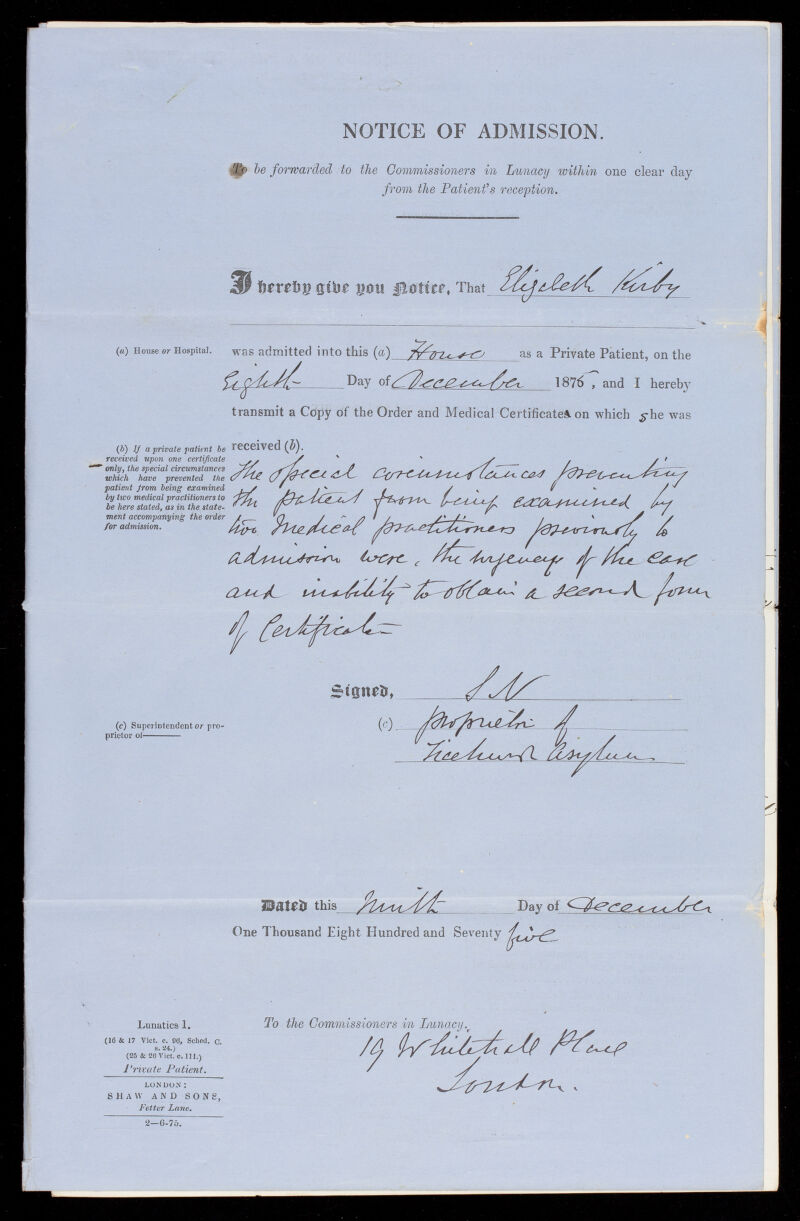 NOTICE OF ADMISSION.
To be forwarded to the Commissioners in Lunacy within one clear day
from the Patient's reception.
I hereby give you Notice, That Elizabeth Kirby
(a) House or Hospital.
was admitted into this (a) House as a Private Patient, on the
Eighth Day of December 1875, and I hereby
transmit a Copy of the Order and Medical Certificate on which she was
received (b).
(b) If a private patient be
received upon one certificate
only, the special circumstances
which have prevented the
patient from being examined
by two medical practitioners to
be here stated, as in the state-
ment accompanying the order
for admission.
The special circumstances preventing
the patient from being examined by
two Medical practitioners previously to
admission were, the urgency of the case
and inability to obtain a second form
of Certificate
Signed, S N
(c) Superintendent or pro-
prietor of
(c) proprietor of
Ticehurst Asylum
Dated this Ninth Day of December
One Thousand Eight Hundred and Seventy five
Lunatics 1.
(16 & 17 Vict. c. 96, Sched. C.
s. 24.)
(25 & 26 Vict. c. 111.)
Private Patient.
LONDON:
SHAW AND SONS,
Fetter Lane.
2—6-75.
To the Commissioners in Lunacy.
19 Whitehall Place
London.